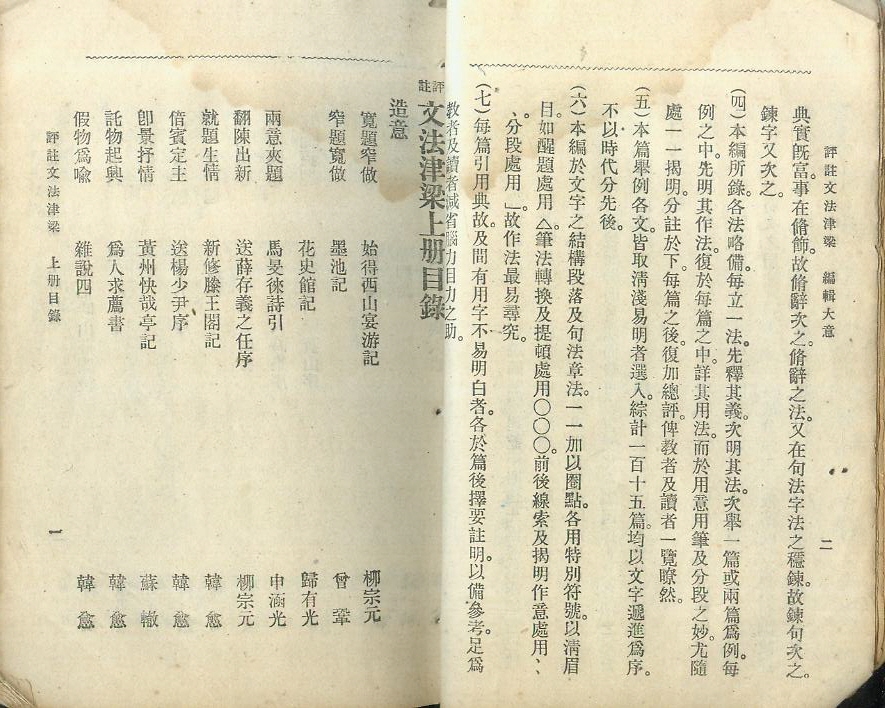 評註文法津梁 編輯大意 二
典實旣富。事在脩飾。故脩辭次之。脩辭之法。又在句法字法之穩鍊。故鍊句次之。
鍊字又次之。
(四)本編所錄。各法略備。每立一法。先釋其義。次明其法。次舉一篇或兩篇爲例。每
例之中。先明其作法。復於每篇之中。詳其用法。而於用意用筆及分段之妙。尤隨
處一一揭明。分註於下。每篇之後。復加總評。俾教者及讀者一覽瞭然。
(五)本篇舉例各文。皆取淸淺易明者選入。綜計一百十五篇。均以文字遞進爲序。
不以時代分先後。
(六)本編於文字之結構段落及句法章法。一一加以圈點。各用特別符號。以淸眉
目。如醒題處用△。筆法轉換及提頓處用〇〇〇。前後線索及揭明作意處用、、
、分段處用」故作法最易尋究。
(七)每篇引用典故。及間有用字不易明白者。各於篇後擇要註明。以備參考。足爲
教者及讀者減省腦力目力之助。
評註文法津梁上册目錄
造意
寬題窄做 始得西山宴游記 柳宗元
窄題寬做 墨池記 曾鞏
花史館記 歸有光
兩意夾題 馬旻徠詩引 申涵光
翻陳出新 送薛存義之任序 柳宗元
就題生情 新修滕王閣記 韓愈
借賓定主 送楊少尹序 韓愈
卽景抒情 黃州快哉亭記 蘇轍
託物起興 爲人求薦書 韓愈
假物爲喩 雜說四 韓愈
評註文法津梁 上册目錄 一